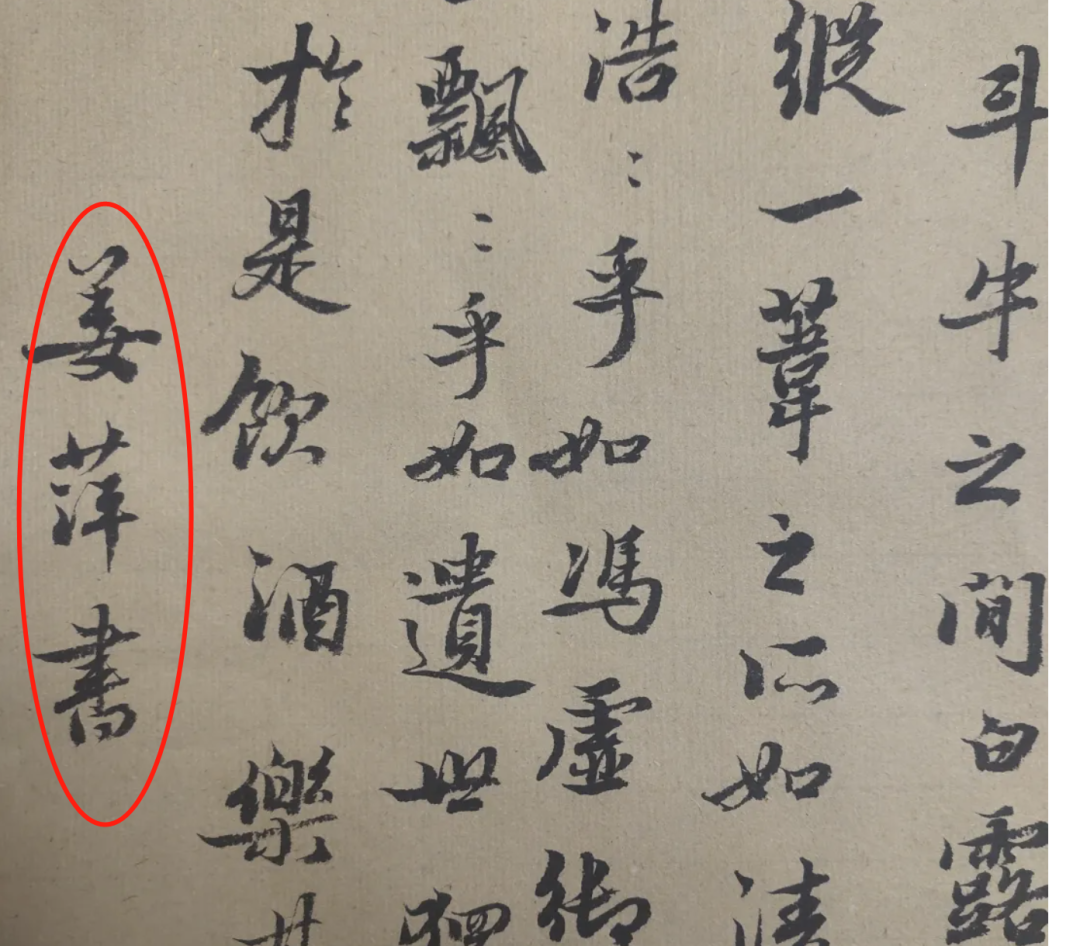 斗牛之間白露
縱一葦之所如淩
浩〻乎如馮虛御
飄〻乎如遺世
於是飲酒樂
姜萍書